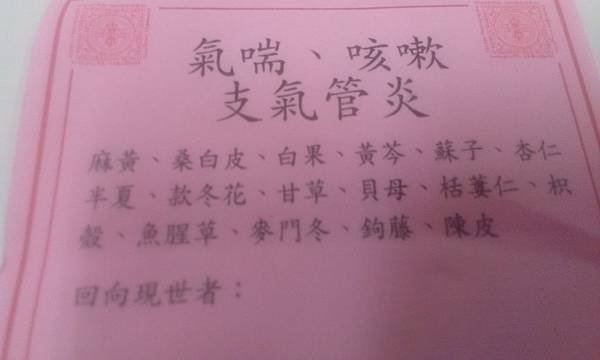 氣喘、咳嗽
支氣管炎
麻黃、桑白皮、白果、黃芩、蘇子、杏仁
半夏、款冬花、甘草、貝母、栝蔞仁、枳
殼、魚腥草、麥門冬、鉤藤、陳皮
回向現世者：